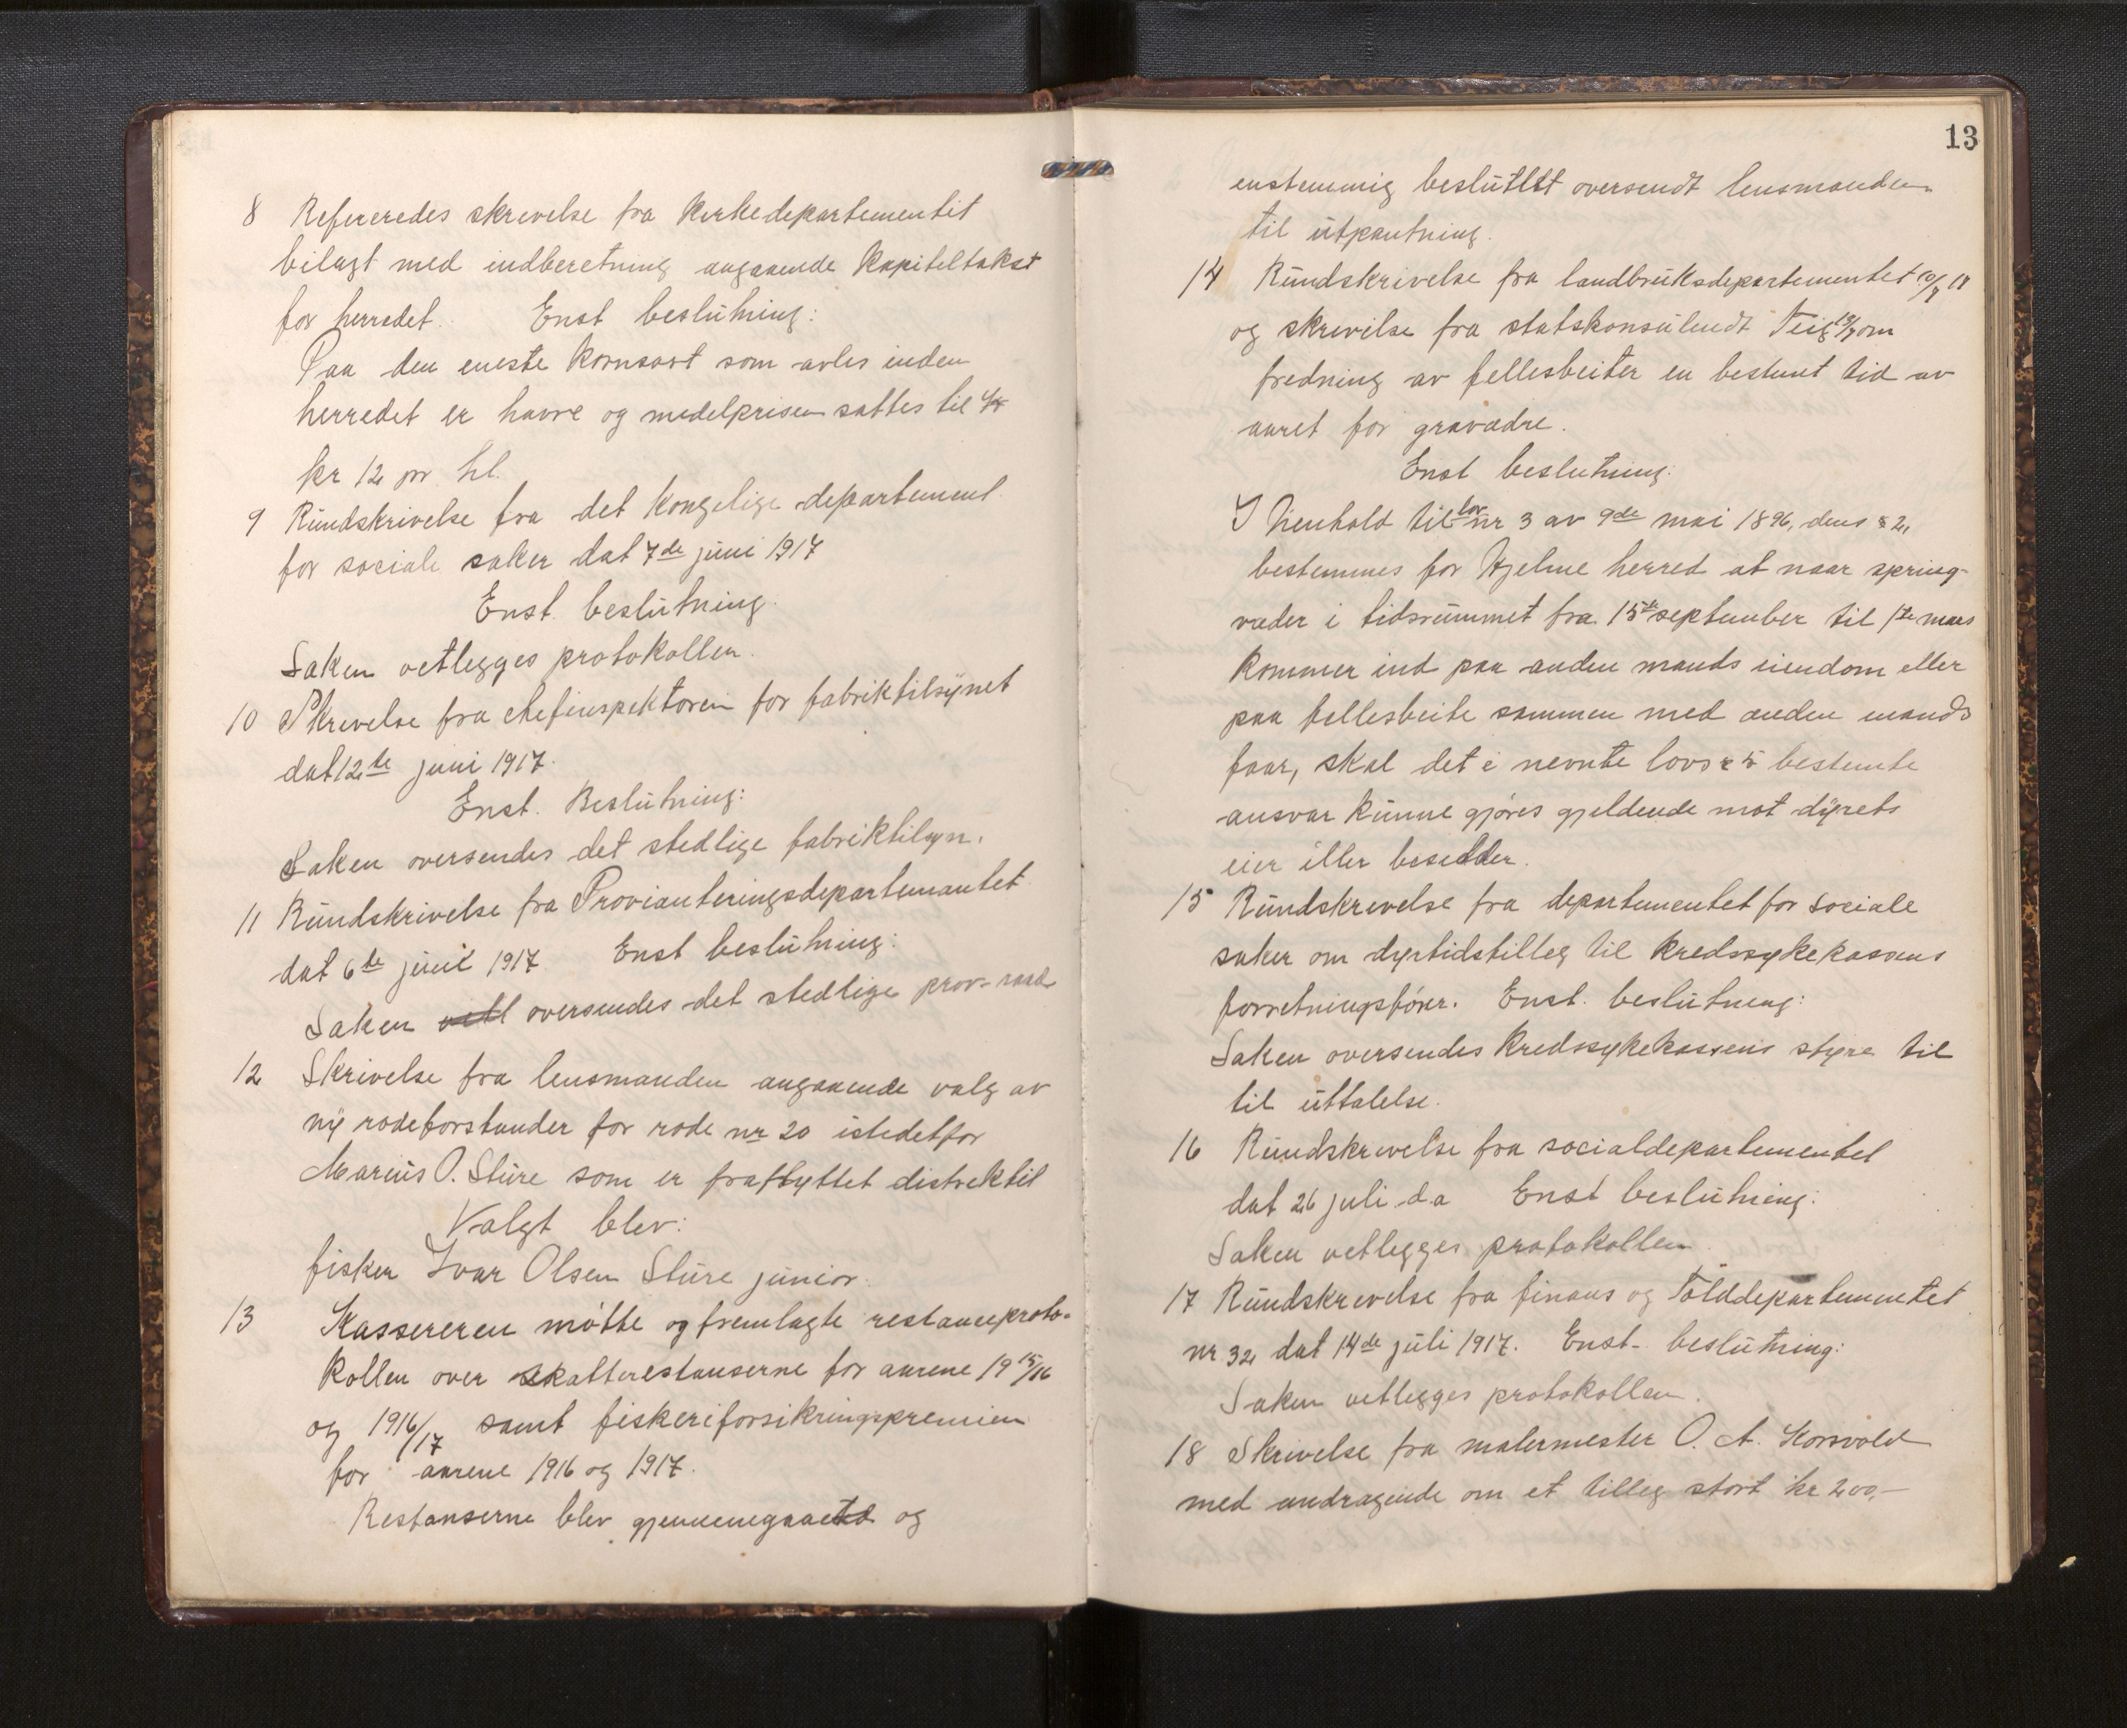 8 Refereredes skrivelse fra Kirkedepartementet
bilagt med indberetning angaaende Kapiteltakst
for herredet. Enst beslutning:
Paa den eneste kornsort som avles inden
herredet er havre og medelprisen sattes til
kr 12 pr hl.
9 Rundskrivelse fra det kongelige departement
for sociale saker dat 7de juni 1917
Enst. beslutning.
Saken vetlegges protokollen.
10 Skrivelse fra chefinspektoren for fabriktilsynet
dat 12te juni 1917.
Enst. Beslutning:
Saken oversendes det stedlige fabriktilsyn.
11 Rundskrivelse fra Provianteringsdepartementet
dat 6te juni 1917 Enst beslutning:
Saken vetl oversendes det stedlige prov-raad
12 Skrivelse fra lensmanden angaaende valg av
ny rodeforstander for rode nr 20 istedetfor
Marius O. Sture som er fraflyttet distriktet
Valgt blev:
fisker Ivar Olsen Sture junior.
13 Kassereren møtte og fremlagte restanseproto-
kollen over skatterestanserne for aarene 1915/16
og 1916/17 samt fiskeriforsikringspremien
for aarene 1916 og 1917.
Restanserne blev gjennemgaaet og
13
enstemmig besluttet oversendt lensmanden
til utpantning.
14 Rundskrivelse fra landbruksdepartementet
og skrivelse fra statskonsulendt Teig 13/7 om
fredning av fellesbeiter en bestemt tid av
aaret for gravædre.
Enst beslutning:
I henhold til lov nr 3 av 9de mai 1896, dens § 2,
bestemmes for Hjelme herred at naar spring-
væder i tidsrummet fra 15de september til 1ste mars
kommer ind paa anden mands eiendom eller
paa fellesbeite sammen med anden mands
faar, skal det i nevnte lovs § 5 bestemte
ansvar kunne gjøres gjeldende mot dyrets
eier eller besidder.
15 Rundskrivelse fra departementet for sociale
saker om dyrtidstilleg til kredssykekassens
forretningsfører. Enst. beslutning:
Saken oversendes kredssykekassens styre til
til uttalelse.
16 Rundskrivelse fra socialdepartementet
dat 26 juli d.a Enst beslutning:
Saken vetlegges protokollen
17 Rundskrivelse fra finans og Tolddepartementet
nr 32 dat 14de juli 1917. Enst- beslutning:
Saken vetlegges protokollen.
18 Skrivelse fra malermester O. A. Korsvold
med andragende om et tilleg stort kr 200,-